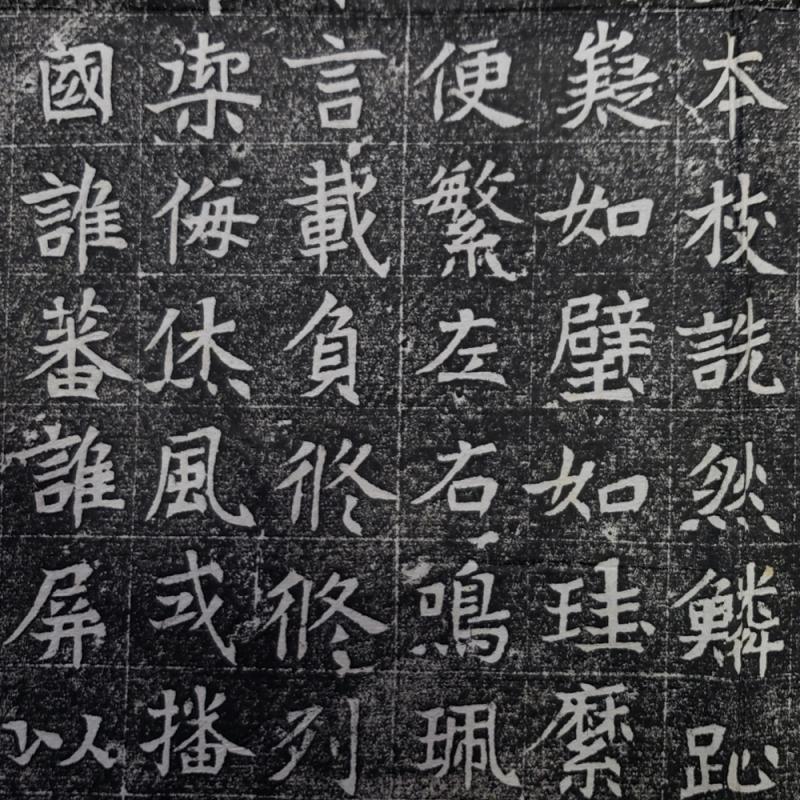 本枝詵然鱗趾
嶷如璧如珪縻
便繁左右鳴珮
言載負修修列
禦侮休風或播
國誰蕃誰屏以